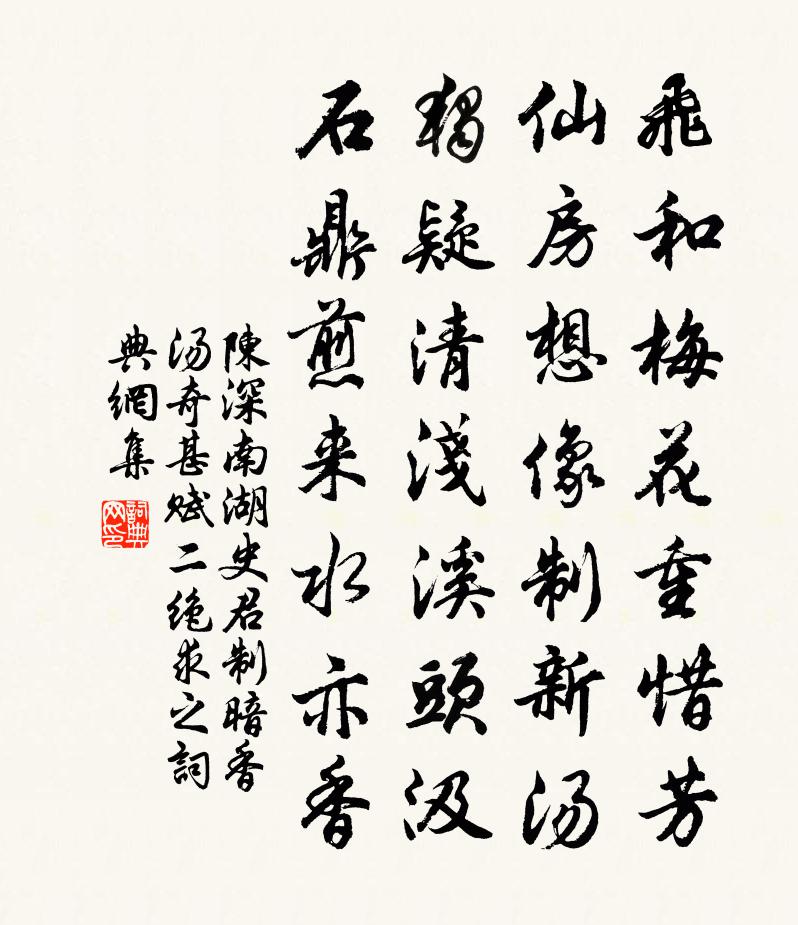 飛和梅花重惜芳
仙房想像制新湯
獨疑清淺溪頭汲
石鼎煎来水亦香
陳深南湖史君制暗香
湯奇甚賦二絶求之詞
典網集
詞典
网印